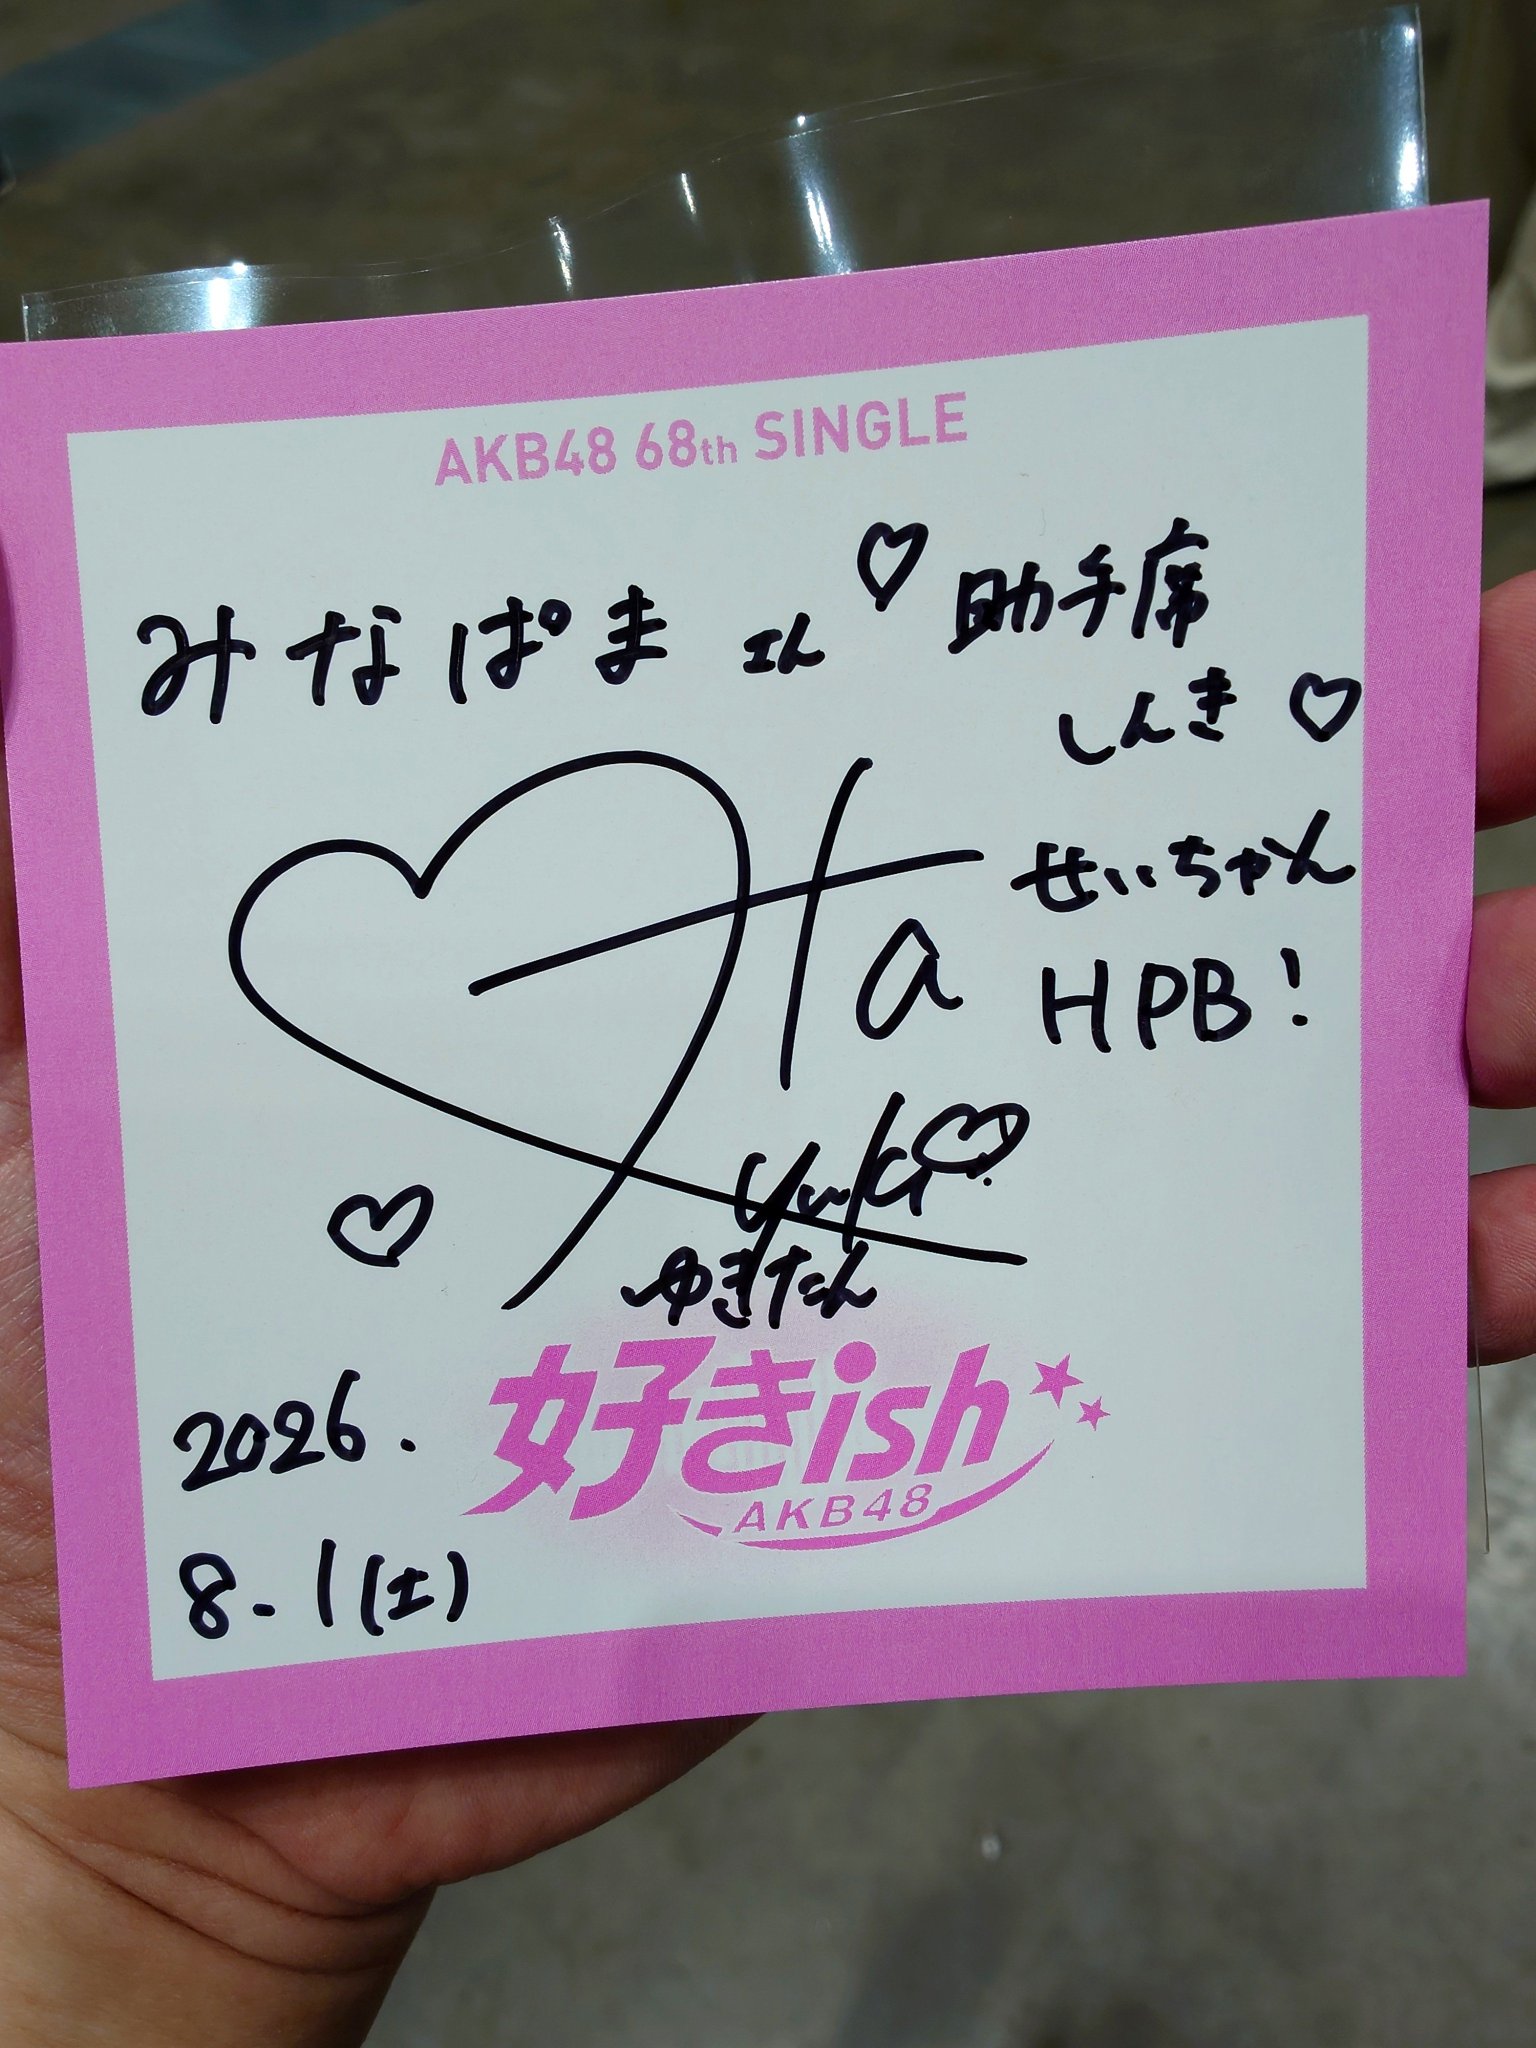 AKB48 68th SINGLE
みなぱまさん♡
助手席
しんき♡
せいちゃん
HPB!
Ota
Yuki♡
ゆきたん
好きish
AKB48
2026.
8.1(土)